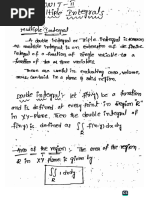 UNIT-II
Multiple Integrals
Multiple Integral
A double integral or triple integral is known
as multiple integral is an extension of a definite
integral of a function of single variable to a
function of two (or) three variable.
These are useful in evaluating area, volume,
mass, centroid of a plane and solid region.
Double Integral: let f(x,y) be a function
and is defined at every point in a region R
in XY-Plane, then the double integral of
f(x,y) is defined as ∬ f(x,y) dxdy
R
Area of the region: The area of the region
R in XY plane is given by
∬ 1·dxdy
R